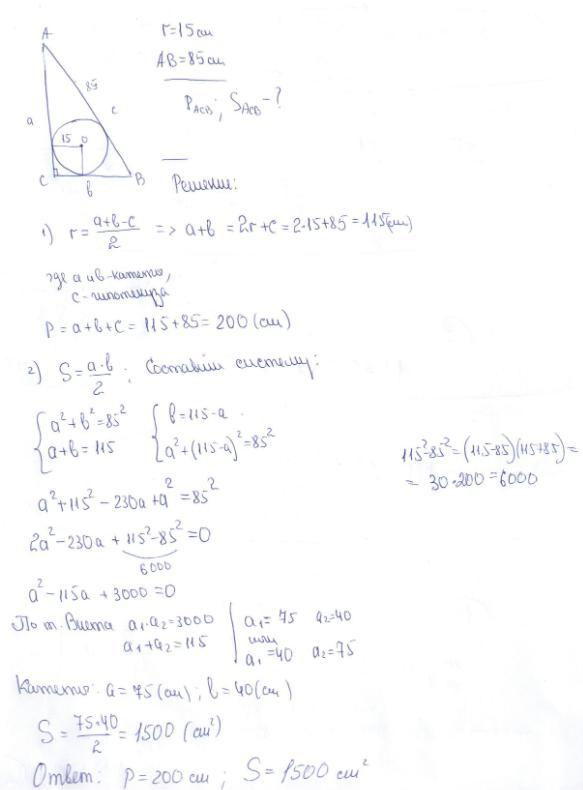 A
r=15см
AB=85см
P_ACB; S_ACB-?
85
a
c
15 O
C b B
Решение:
1) r = (a+b-c)/2 => a+b = 2r+c = 2·15+85 = 115(см)
где a и b-катеты,
c-гипотенуза
P = a+b+c = 115+85 = 200 (см)
2) S = a·b/2; Составим систему:
{ a²+b²=85² { b=115-a
{ a+b=115 { a²+(115-a)²=85²
115²-85²=(115-85)(115+85)=
= 30·200=6000
a²+115²-230a+a²=85²
2a²-230a+115²-85²=0
6000
a²-115a+3000=0
По т. Виета a₁·a₂=3000 a₁=75 a₂=40
a₁+a₂=115 или
a₁=40 a₂=75
Катеты: a=75(см); b=40(см)
S = 75·40/2 = 1500 (см²)
Ответ: P=200 см; S=1500 см²